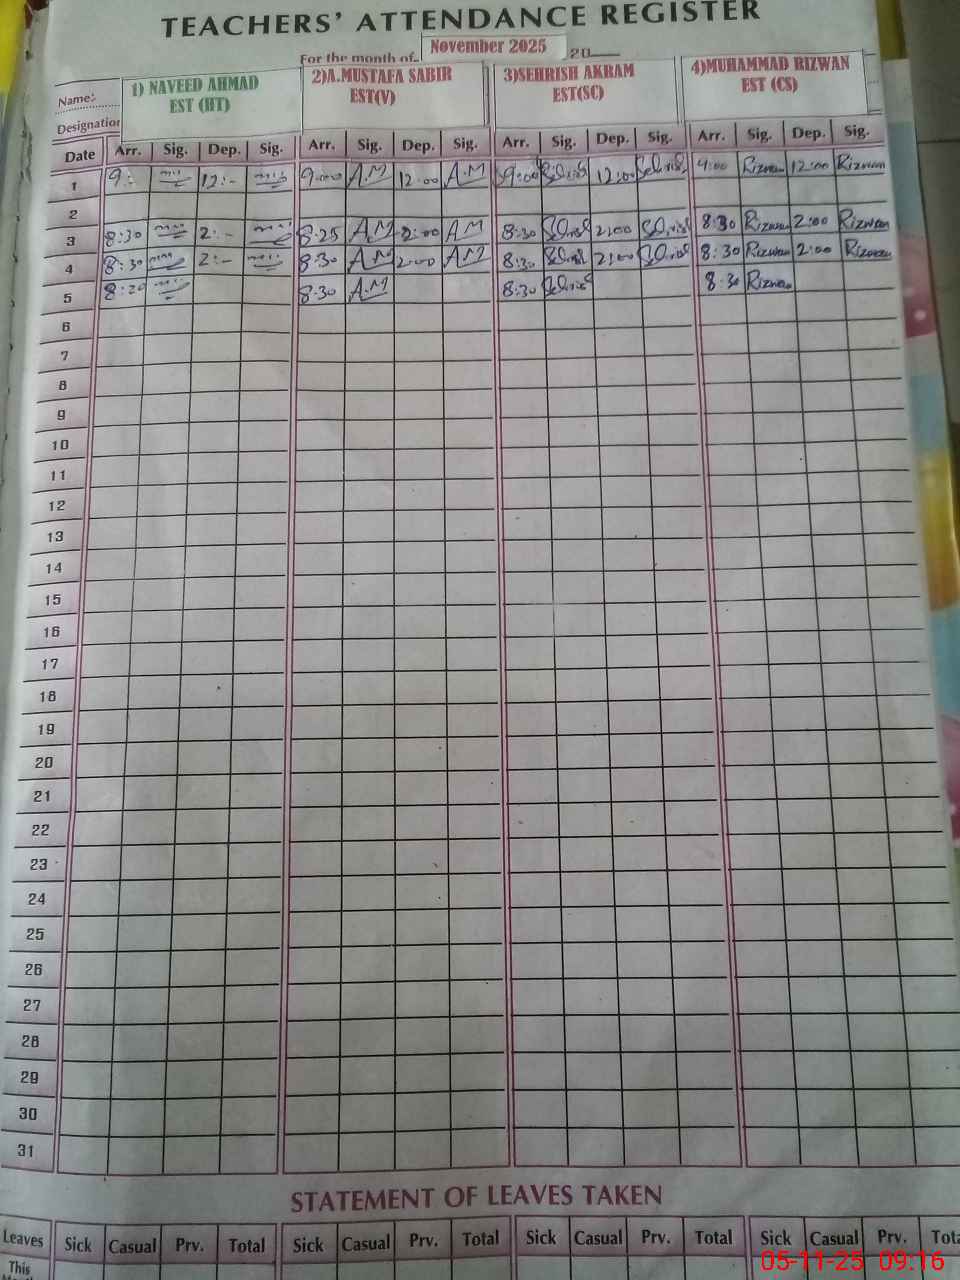 TEACHERS' ATTENDANCE REGISTER
For the month of November 2025 20
1) NAVEED AHMAD 2)A.MUSTAFA SABIR 3)SEHRISH AKRAM 4)MUHAMMAD RIZWAN
Name:
EST (HT) EST(V) EST(SC) EST (CS)
Designation
Date Arr. Sig. Dep. Sig. Arr. Sig. Dep. Sig. Arr. Sig. Dep. Sig. Arr. Sig. Dep. Sig.
1 9:- 12:- 9:00 A.M 12:00 A.M 9:00 Sehrish 12:00 Sehrish 9:00 Rizwan 12:00 Rizwan
2
3 8:30 2:- 8:25 A.M 2:00 A.M 8:30 Sehrish 2:00 Sehrish 8:30 Rizwan 2:00 Rizwan
4 8:30 2:- 8:30 A.M 2:00 A.M 8:30 Sehrish 2:00 Sehrish 8:30 Rizwan 2:00 Rizwan
5 8:20 8:30 A.M 8:30 Sehrish 8:30 Rizwan
6
7
8
9
10
11
12
13
14
15
16
17
18
19
20
21
22
23
24
25
26
27
28
29
30
31
STATEMENT OF LEAVES TAKEN
Leaves Sick Casual Prv. Total Sick Casual Prv. Total Sick Casual Prv. Total Sick Casual Prv.
This
05-11-25 09:16